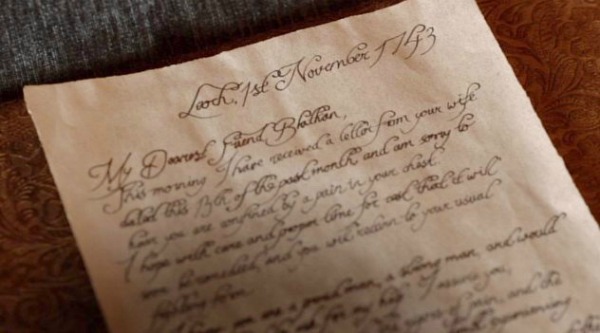 Leoch, 1st November 1743
My Dearest Friend Bhathan,
This morning I have received a letter from your wife
dated this 13th of the past month and am sorry to
hear you are confined by a pain in your chest.
I hope with care and proper time for rest that it will
soon be remedied, and you will return to your usual
fighting form.
I know you are a proud man, a strong man, and would
ask for my help I assure you,
pain, and the